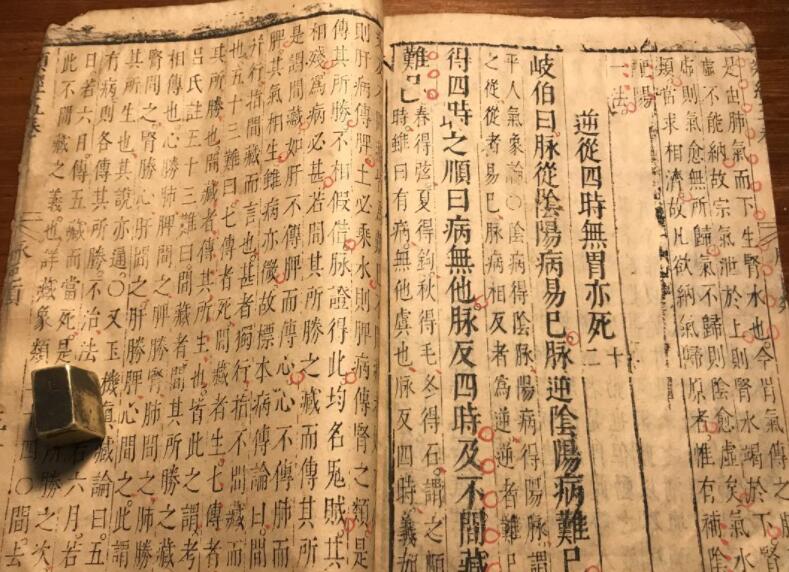 是由肺氣而下生腎水也今胃氣傳之
虛不能納故宗氣泄於上則腎水竭於下腎
虛則氣愈無所歸氣不歸則陰愈虛矣氣水
類當求相濟故凡欲納氣歸原者惟有補陰
配陽
一法
逆從四時無胃亦死 十二
岐伯曰脉從陰陽病易已脉逆陰陽病難已
平人氣象論○陰病得陰脉陽病得陽脉謂
之從從者易已脉病相反者為逆逆者難已
得四時之順曰病無他脉反四時及不間藏
難已
春得弦夏得鈎秋得毛冬得石謂之順
時雖曰有病無他虞也脉反四時義如
則肝病傳脾土必乘水則脾病傳腎之類是
傳其所勝不相假借脉證得此均名鬼賊其
相殘為病必甚若間其所勝之藏而傳其所
是謂間藏如肝不傳脾而傳心心不傳肺而
脾其氣相生雖病亦微故標本病傳論曰間
并行指間藏而言也甚者獨行指不間藏而
也五十三難曰七傳者死間藏者生七傳者
其所勝也間藏者傳其所生也皆此之謂考
呂氏註五十三難曰間藏者間其所勝之藏
相傳也心勝肺脾間之脾勝腎肺間之肺勝
腎間之腎勝心肝間之肝勝脾心間之此謂
其所生也其說亦通○又玉機真藏論曰五
有病則各傳其所勝不治法 若六月若
日若六日傳五藏而當死是 所勝之次
此不間藏之義也詳藏象類二十四○間去